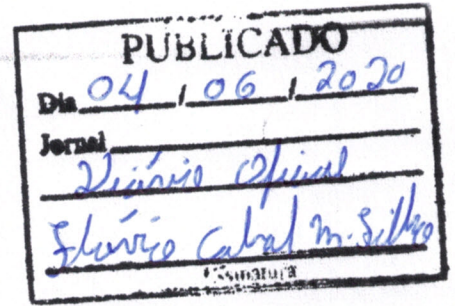 PUBLICADO
Dia 04 / 06 / 2020
Jornal
Diário Oficial
Flávio Cabral M. Silva
Assinatura